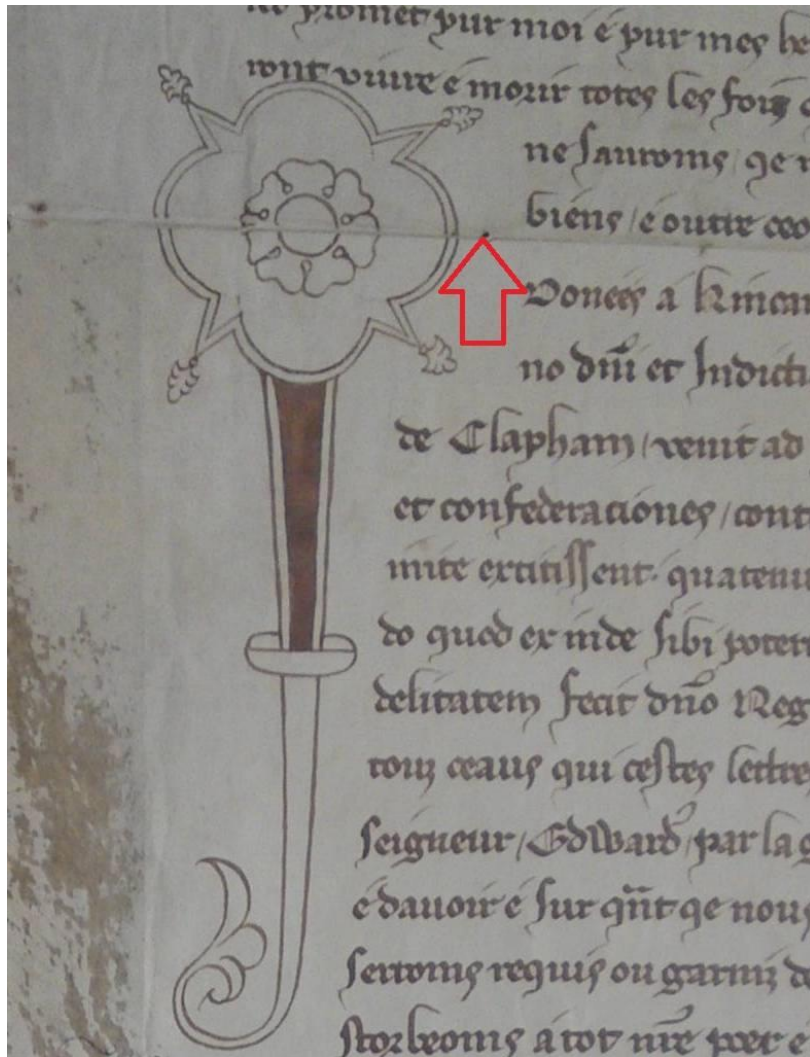 promet pur moi e pur mes he
viure e morir totes les foiz
ne sauroms qe
biens / e outre ceo
Donees a Kincar
no dn̄i et Indicti
de Clapham / venit ad
et confederaciones / cont
mite extitissent. quatenu
do quod ex inde sibi poter
delitatem fecit dn̄o Reg
touz ceaus qui cestes lettre
seigneur / Edward / par la g
e dauoir e sur qn̄t qe nous
serroms requis ou garniz de
storbeoms a tot nr̄e poer e